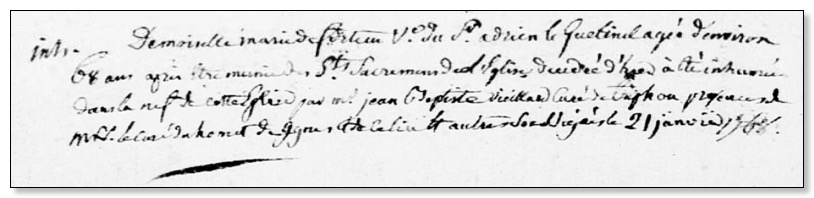 inh. Demoiselle marie de v.e du Sr. adrien le Guetinel agée d'environ
68 ans après être munie des Sts Sacremens de l'Eglise decedée d'hier à été inhumée
dans la nef de cette Eglise par me. jean Baptiste vieillard Curé de en presence de
le curé du homet de et de celui et autres Sousignés le 21 janvier